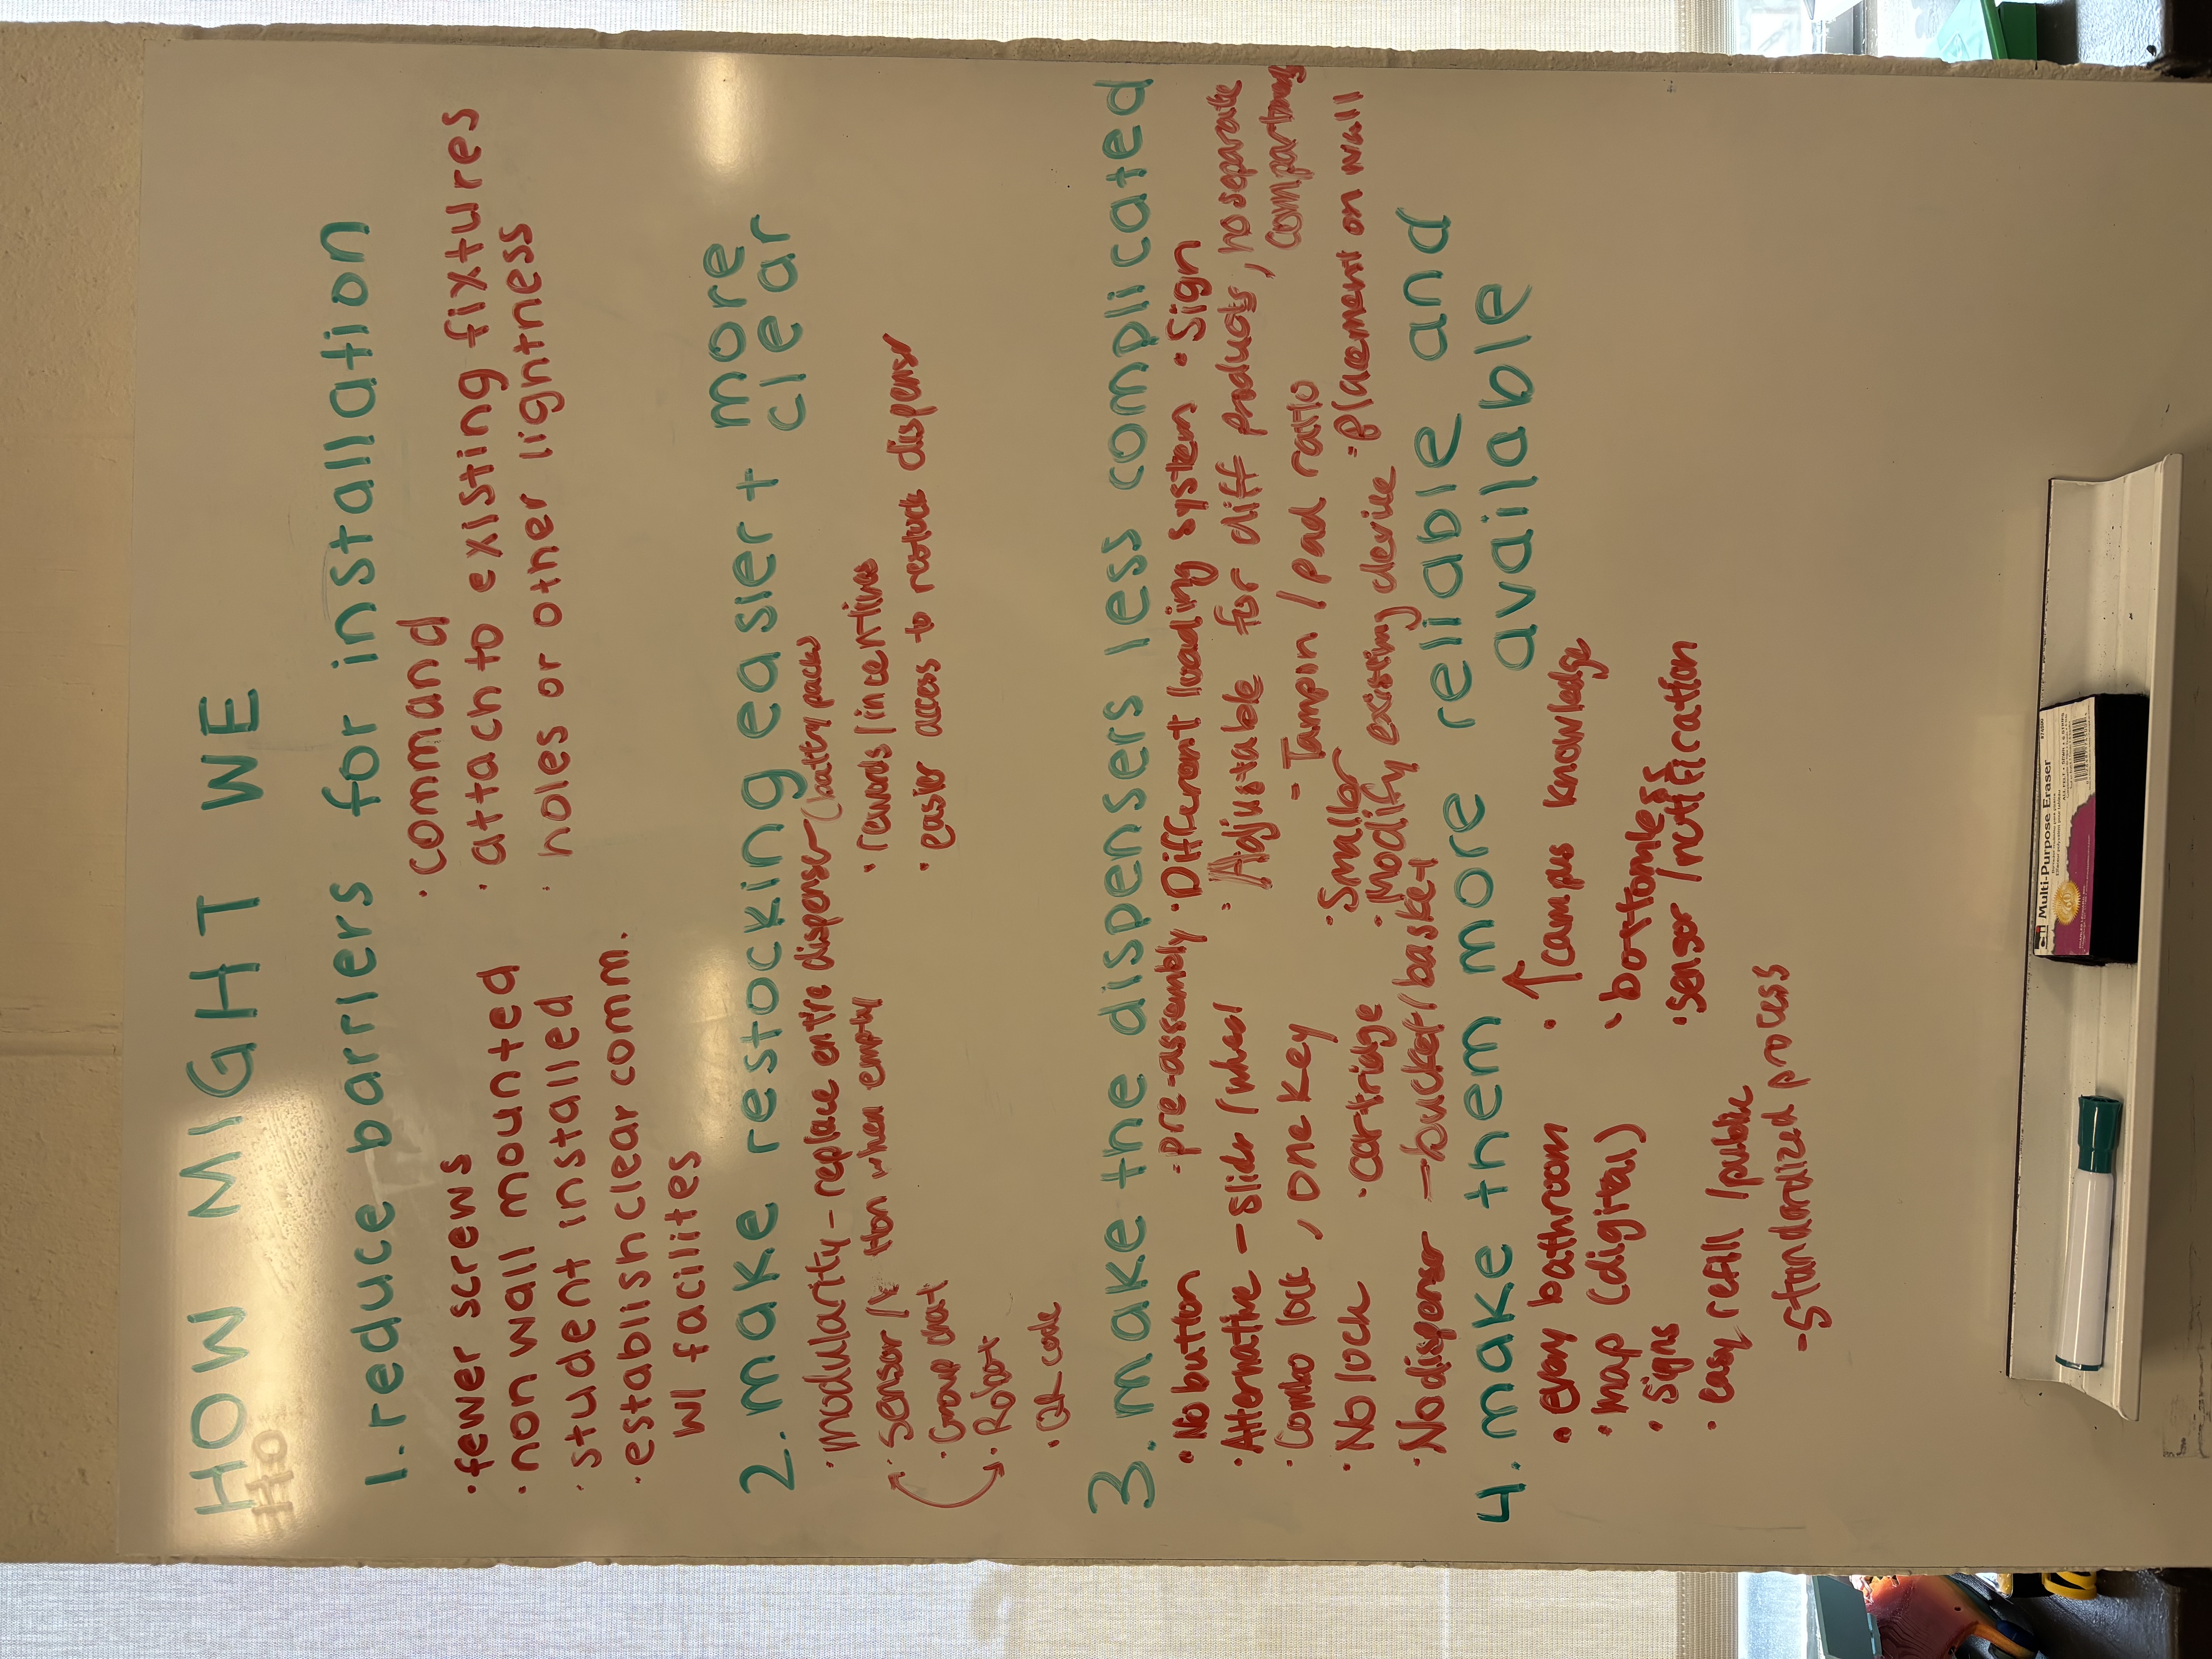 HOW MIGHT WE
Ho
1. reduce barriers for installation
· fewer screws
· non wall mounted
· student installed
· establish clear comm.
W/ facilites
· command
· attach to existing fixtures
· holes or other lightness
2. make restocking easier + more clear
· Modularity - replace entire dispenser (battry packs)
· Sensor / when empty
· Group chat
· Robot
· QR code
· rewards / incentives
· easier access to restock dispenser
3. make the dispensers less complicated
· No button
· Alternative - slider / wheel
· Combo lock, one key
· No lock
· No dispenser - bucket / basket
- pre-assembly
· cartridge
· Different loading system
· Adjustable for diff products, no separate
- Tampon / pad ratio
· Smaller
· Modify existing device
· Sign
- Placement on wall
4. make them more reliable and
available
· Every bathroom
· Map (digital)
· Signs
· easy refill / public
- standardized process
· ↑ campus knowledge
· bottomless
· sensor / notification
Multi-Purpose Eraser